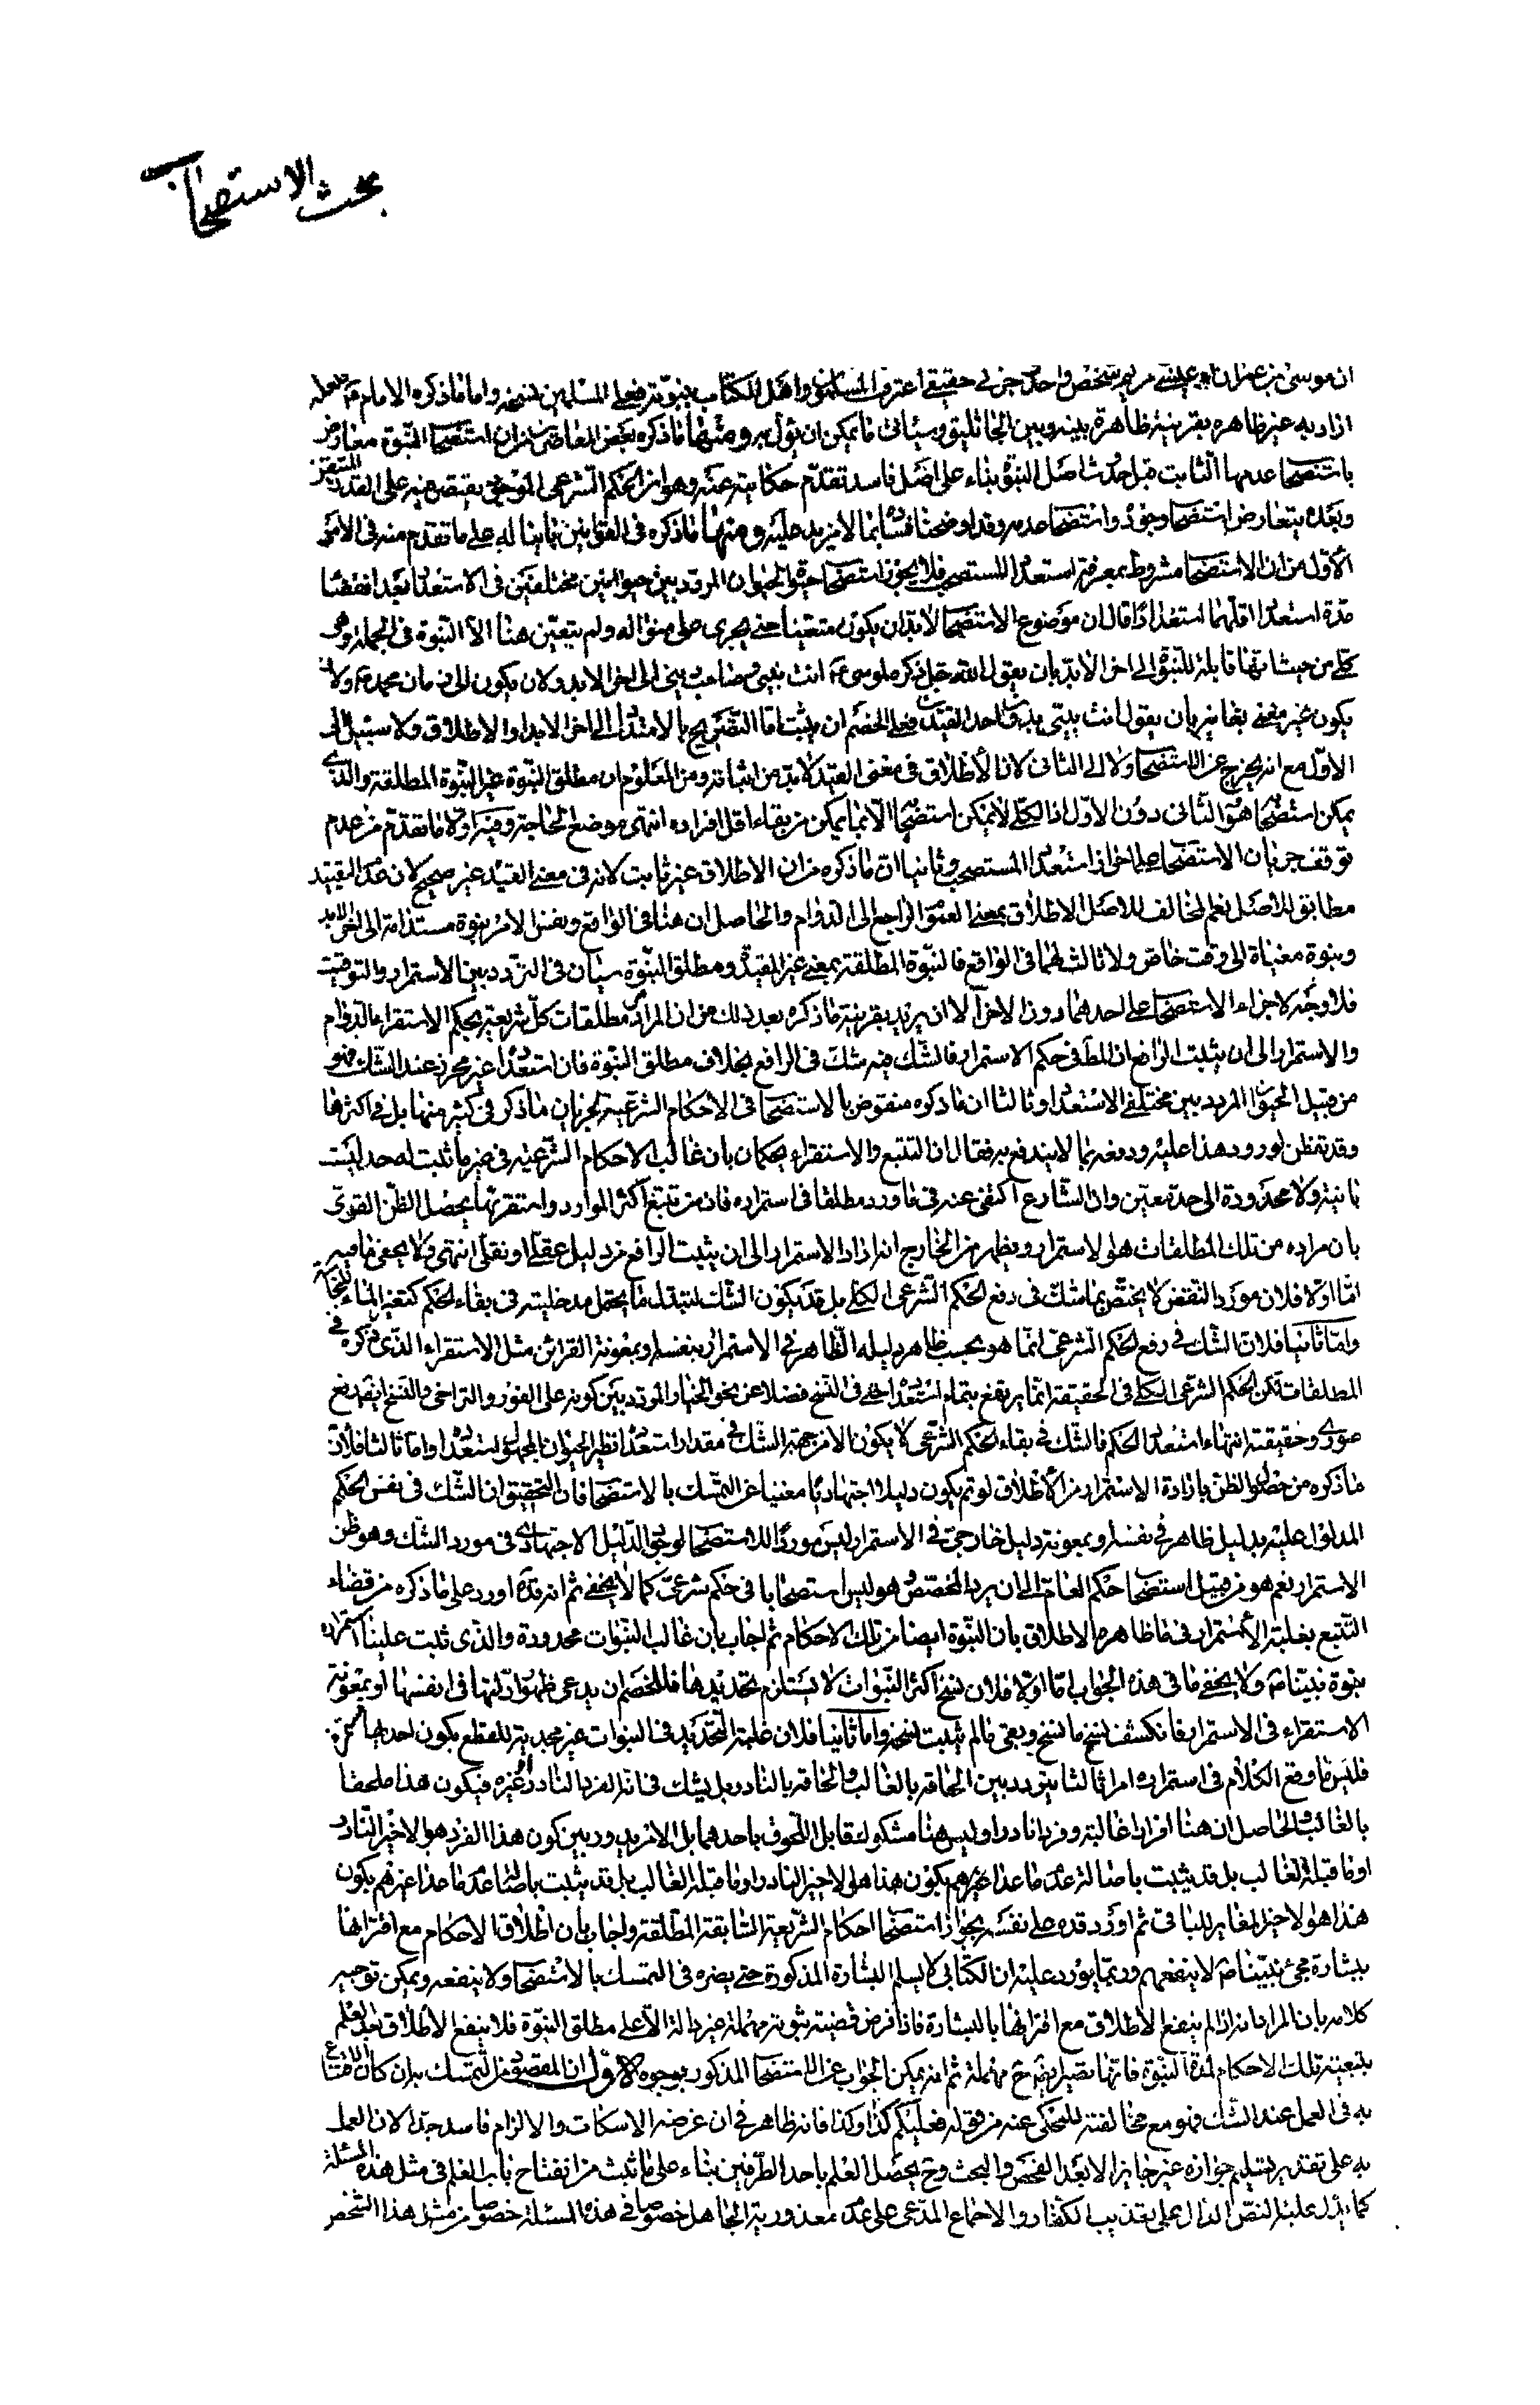 بحث الاستصحاب
ان موسى بن عمران او عيسى بن مريم شخص واحد جزئى حقيقى اعترف المسلمون واهل الكتاب بنبوته فعلى المسلمين نسخه واما ما ذكره الامام ع فلعله
اراد به غير ظاهره بقرينة ظاهرة بينه وبين الجاثليق وسيأتى ما يمكن ان يؤل به ومنها ما ذكره بعض المعاصرين من ان استصحاب النبوة معارض
باستصحاب عدمها الثابت قبل حدوث اصل النبوة بناء على اصل فاسد تقدم حكايته عنه وهو ان الحكم الشرعى الموجود يقتصر فيه على القدر المتيقن
وبعده يتعارض استصحاب وجوده واستصحاب عدمه وقد اوضحنا فساده بما لا مزيد عليه ومنها ما ذكره فى القوانين بانيا له على ما تقدم منه فى الامر
الأول من ان الاستصحاب مشروط بمعرفة استعداد المستصحب فلا يجوز استصحاب حيوة الحيوان المردد بين حيوانين مختلفين فى الاستعداد بعد انقضاء
مدة استعداد اقلهما استعدادا قال ان موضوع الاستصحاب لا بد ان يكون متعينا حتى يجرى على منواله ولم يتعين هنا الا النبوة فى الجملة وهى
كلى من حيث انها قابلة للنبوة الى اخر الابد بان يقول الله جل ذكره لموسى ع انت نبيى وصاحب دينى الى اخر الابد ولان يكون الى زمان محمد ص ولان
يكون غير مغيى بغاية بان يقول انت نبيى بدون احد القيدين فعلى الخصم ان يثبت اما التصريح بالامتداد الى اخر الابد او الاطلاق ولا سبيل الى
الاول مع انه يخرج عن الاستصحاب ولا الى الثانى لان الاطلاق فى معنى القيد لا بد من اثباته ومن المعلوم ان مطلق النبوة غير النبوة المطلقة والذى
يمكن استصحابه هو الثانى دون الاول اذ الكلى لا يمكن استصحابه الا بما يمكن من بقاء اقل افراده انتهى موضع الحاجة وفيه اولا ما تقدم من عدم
توقف جريان الاستصحاب على احراز استعداد المستصحب وثانيا ان ما ذكره من ان الاطلاق غير ثابت لانه فى معنى القيد غير صحيح لان عدم التقييد
مطابق للاصل نعم المخالف للاصل الاطلاق بمعنى العموم الراجع الى الدوام والحاصل ان هنا فى الواقع ونفس الامر نبوة مستدامة الى اخر الابد
ونبوة مغياة الى وقت خاص ولا ثالث لهما فى الواقع فالنبوة المطلقة بمعنى غير المقيدة ومطلق النبوة سيان فى التردد بين الاستمرار والتوقيت
فلا وجه لاجراء الاستصحاب على احدهما دون الاخر الا ان يريد بقرينة ما ذكره بعد ذلك من ان المراد مطلقات كل شريعة بحكم الاستقراء الدوام
والاستمرار الى ان يثبت الرافع ان المطلق فى حكم الاستمرار فالشك فيه شك فى الرافع بخلاف مطلق النبوة فان استعداده غير محرز عند الشك فهو
من قبيل الحيوان المردد بين مختلفى الاستعداد وثالثا ان ما ذكره منقوض بالاستصحاب فى الاحكام الشرعية لجريان ما ذكر فى كثير منها بل فى اكثرها
وقد تفطن لورود هذا عليه ودفعه بما لا يندفع به فقال ان التتبع والاستقراء يحكمان بان غالب الاحكام الشرعية فى غير ما ثبت له حد ليست
بانية ولا محدودة الى حد معين وان الشارع اكتفى عنه فى ما ورد مطلقا فى استمراره فان من تتبع اكثر الموارد واستقرئها يحصل الظن القوى
بان مراده من تلك المطلقات هو الاستمرار ويظهر من الخارج انه اراد الاستمرار الى ان يثبت الرافع من دليل عقلى او نقلى انتهى ولا يخفى ما فيه
اما اولا فلان مورد النقض لا يختص بما شك فى رفع الحكم الشرعى الكلى بل قد يكون الشك لتبدل ما يحتمل مدخليته فى بقاء الحكم كتغير الماء للنجاسة
واما ثانيا فلان الشك فى رفع الحكم الشرعى انما هو بحسب ظاهر دليله الظاهر فى الاستمرار بنفسه او بمعونة القرائن مثل الاستقراء الذى ذكره فى
المطلقات لكن الحكم الشرعى الكلى فى الحقيقة انما يرتفع بتمام استعداده حتى فى النسخ فضلا عن نحو الخيار المردد بين كونه على الفور والتراخى والنسخ ايضا رفع
صورى وحقيقته انتهاء استعداد الحكم فالشك فى بقاء الحكم الشرعى لا يكون الا من جهة الشك فى مقدار استعداده نظير الحيوان المجهول استعداده واما ثالثا فلان
ما ذكره من حصول الظن بارادة الاستمرار من الاطلاق لو تم يكون دليلا اجتهاديا مغنيا عن التمسك بالاستصحاب فان التحقيق ان الشك فى نفس الحكم
المدلول عليه بدليل ظاهر فى نفسه او بمعونة دليل خارجى فى الاستمرار ليس موردا للاستصحاب لوجود الدليل الاجتهادى فى مورد الشك وهو ظن
الاستمرار نعم هو من قبيل استصحاب حكم العام الى ان يرد المخصص وهو ليس استصحابا فى حكم شرعى كما لا يخفى ثم انه قده اورد على ما ذكره من قضاء
التتبع بغلبة الاستمرار فى ما ظاهره الاطلاق بان النبوة ايضا من تلك الاحكام ثم اجاب بان غالب النبوات محدودة والذى ثبت علينا استمراره
نبوة نبينا ص ولا يخفى ما فى هذه الجواب اما اولا فلان نسخ اكثر النبوات لا يستلزم تحديدها فللخصم ان يدعى ظهور ادلتها فى انفسها او بمعونة
الاستقراء فى الاستمرار فانكشف نسخ ما نسخ وبقى ما لم يثبت نسخه واما ثانيا فلان غلبة التحديد فى النبوات غير مجدية للقطع بكون احديها مستمرة
فليس ما وقع الكلام فى استمراره امرا ثالثا يتردد بين الحاقه بالغالب والحاقه بالنادر بل يشك فى انه الفرد النادر او غيره فيكون هذا ملحقا
بالغالب والحاصل ان هنا افرادا غالبة وفردا نادرا وليس هنا مشكوك قابل اللحوق باحدهما بل الامر يدور بين كون هذا الفرد هو الاخير النادر
او ما قبله الغالب بل قد يثبت باصالة عدم ما عدا غيرهم يكون هذا هو الاخير النادر او ما قبله الغالب بل قد يثبت باصالة عدم ما عدا غيرهم يكون
هذا هو الاخير المغاير للباقى ثم اورد قده على نفسه بجواز استصحاب احكام الشريعة السابقة المطلقة واجاب بان اطلاق الاحكام مع اقترانها
ببشارة مجىء نبينا ص لا ينفعهم وربما يورد عليه ان الكتابى لا يسلم البشارة المذكورة حتى يضره فى التمسك بالاستصحاب ولا ينفعه ويمكن توجيه
كلامه بان المراد انه اذا لم ينفع الاطلاق مع اقترانها بالبشارة فاذا فرض قضية نبوته مهملة غير دالة الا على مطلق النبوة فلا ينفع الاطلاق بعد العلم
بتبعية تلك الاحكام لمدة النبوة فانها تصير ايضا ح مهملة ثم انه يمكن الجواب عن الاستصحاب المذكور بوجوه الاول ان المقصود من التمسك به ان كان الاقتناع
به فى العمل عند الشك فهو مع مخالفته للمحكى عنه من قوله فعليكم كذا وكذا فانه ظاهر فى ان غرضه الاسكات والالزام فاسد جدا لان العمل
به على تقدير تسليم جوازه غير جايز الا بعد الفحص والبحث وح يحصل العلم باحد الطرفين بناء على ما ثبت من انفتاح باب العلم فى مثل هذه المسئلة
كما يدل عليه النص الدال على تعذيب الكفار والاجماع المدعى على عدم معذورية الجاهل خصوصا فى هذه المسئلة خصوصا من مثل هذا الشخص